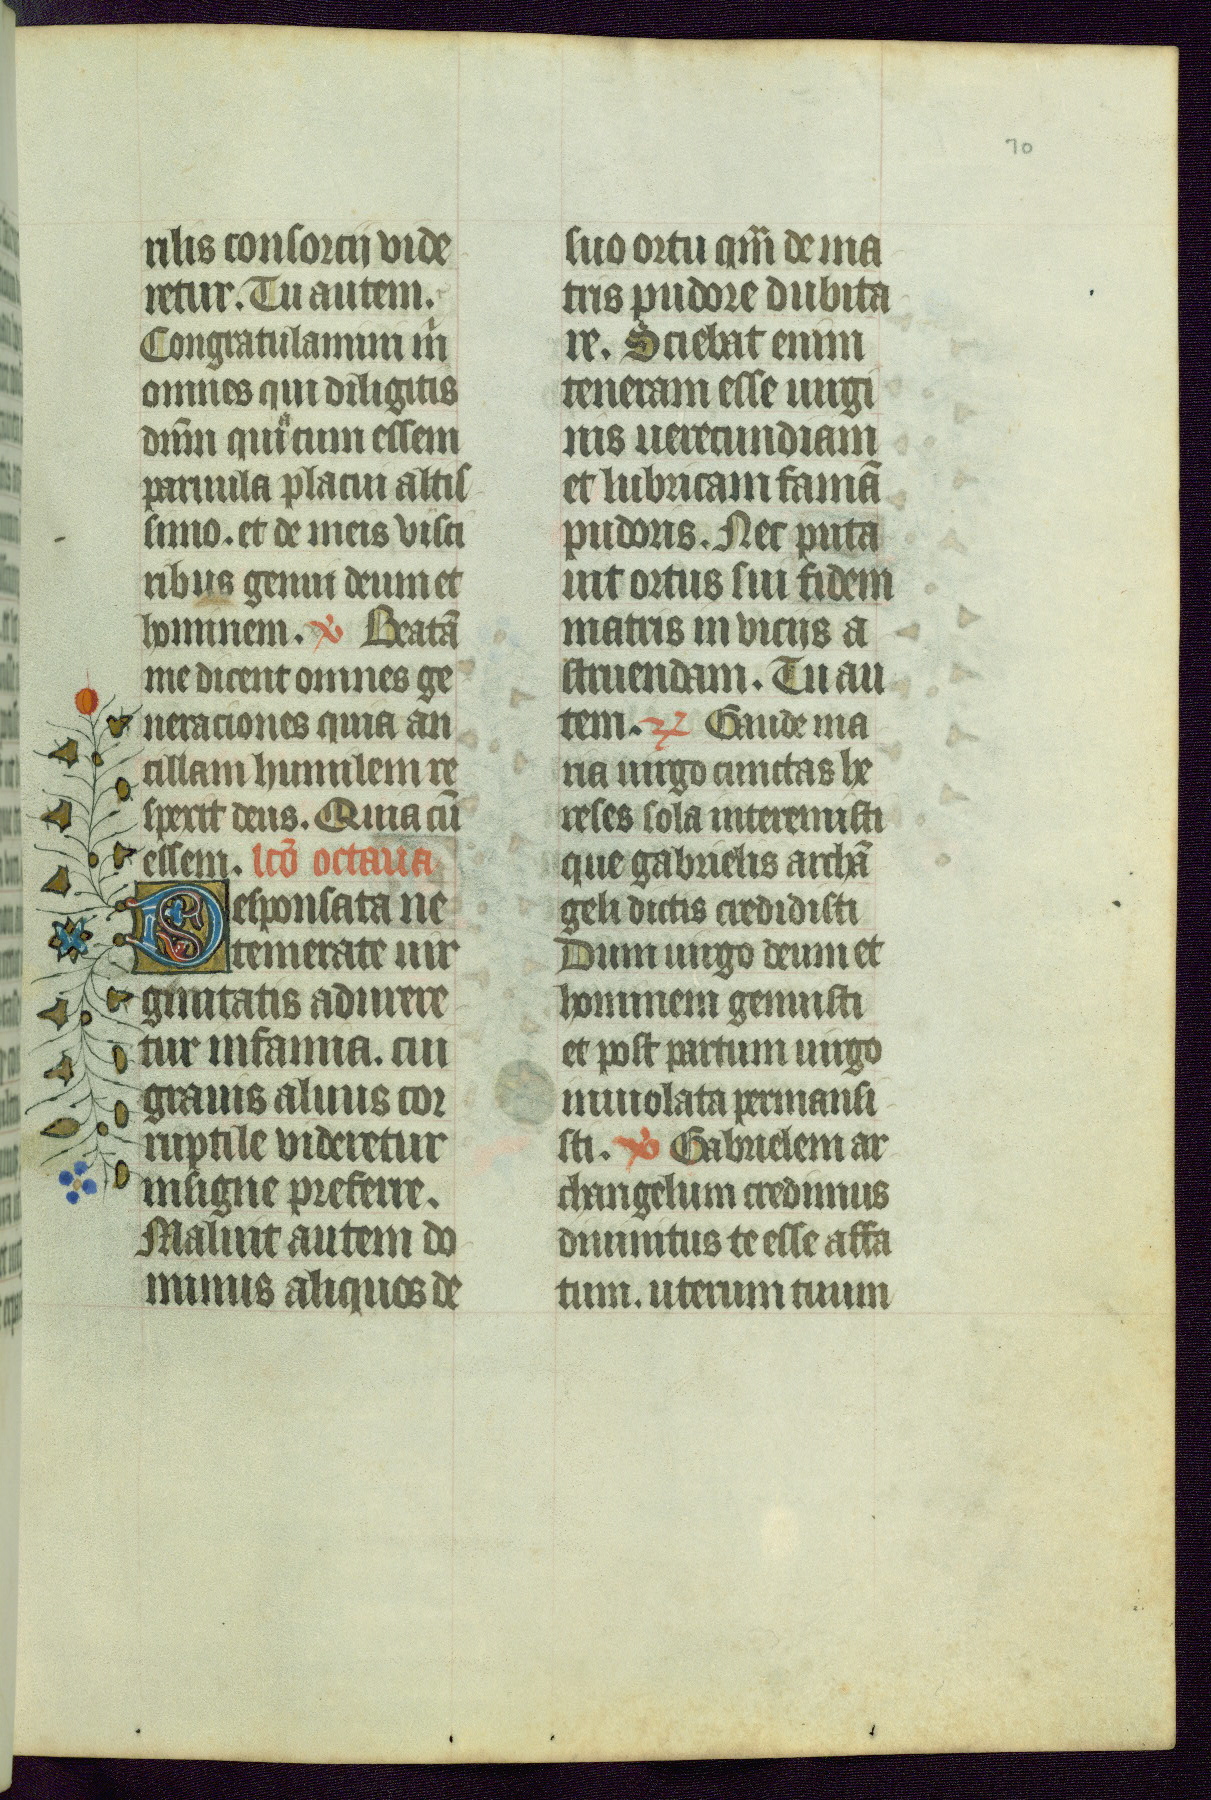 70
rilis consorcij vide
retur. Tu autem.
Congratulamini m̄
omnes qui diligitis
dn̄m quia cum essem
paruula placui altis
simo. et de meis visce
ribus genui deum et
hominem. v Beatā
me dicent omnes ge
neraciones quia an
cillam humilem re
spexit deus. Quia cū
essem. lcō octaua
Desponsata ne
temerate uir
ginitatis adurere
tur infamia. cui
grauis aluus cor
ruptile videretur
insigne preferre.
Maluit autem do
minus aliquos de
suo ortu qm̄ de ma
tris pudore dubita
re. Sciebat enim
teneram esse uirgi
nis uerecundiam
et lubricam famā
pudoris. Nec puta
uit ortus sui fidem
matris in vicijs a
struendam. Tu au
tem. r Gaude ma
ria uirgo cunctas he
reses sola interemisti
que gabrielis archā
geli dictis credidisti
Dum uirgo deum et
hominem genuisti
et post partum uirgo
inuiolata permansi
sti. v Gabrielem ar
changelum credimus
diuinitus te esse affa
tum. uterum tuum